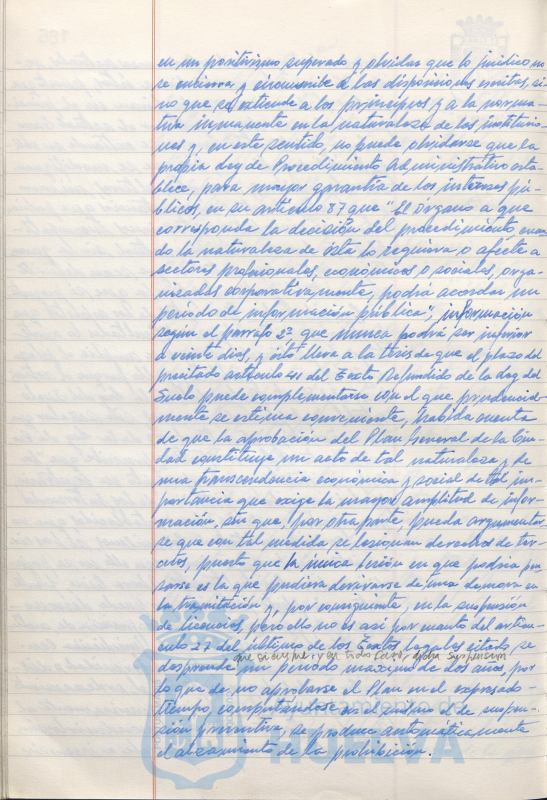 en un positivismo superado y olvidar que lo jurídico no
se encierra y circunscribe a las disposiciones escritas, si-
no que se extiende a los principios y a la norma-
tiva inmanente en la naturaleza de las institucio-
nes y, en este sentido, no puede olvidarse que la
propia Ley de Procedimiento Administrativo esta-
blece, para mayor garantía de los intereses pú-
blicos, en su artículo 87 que "El órgano a que
corresponda la decisión del procedimiento, cuan-
do la naturaleza de éste lo requiera o afecte a
sectores profesionales, económicos o sociales, orga-
nizados corporativamente, podrá acordar un
período de información pública"; información
según el párrafo 2º que nunca podrá ser inferior
a veinte días, y ésto lleva a la tesis de que el plazo del
precitado artículo 41 del Texto Refundido de la Ley del
Suelo puede complementarse con el que prudencial-
mente se estima conveniente, habida cuenta
de que la aprobación del Plan General de la Ciu-
dad constituye un acto de tal naturaleza y de
una transcendencia económica y social de tal im-
portancia que exige la mayor amplitud de infor-
mación, sin que, por otra parte, pueda argumentar-
se que con tal medida se lesionan derechos de ter-
ceros, puesto que la única lesión en que podría pen-
sarse es la que pudiera derivarse de una demora en
la tramitación y, por consiguiente, en la suspensión
de licencias, pero ello no es así por cuanto del artícu-
culo 27 del último de los Textos legales citados, se
desprende que siempre y en todo caso, dicha suspensión
un período máximo de dos años, por
lo que de no aprobarse el Plan en el expresado
tiempo computándose en el mismo el de suspen-
sión preventiva, se produce automáticamente
el alzamiento de la prohibición.
HUELVA